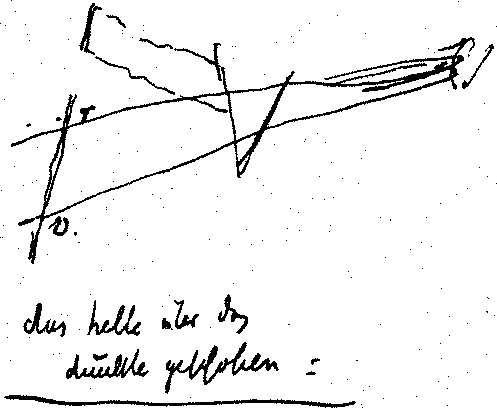 r
v.
das helle über das
dunkle geschoben =